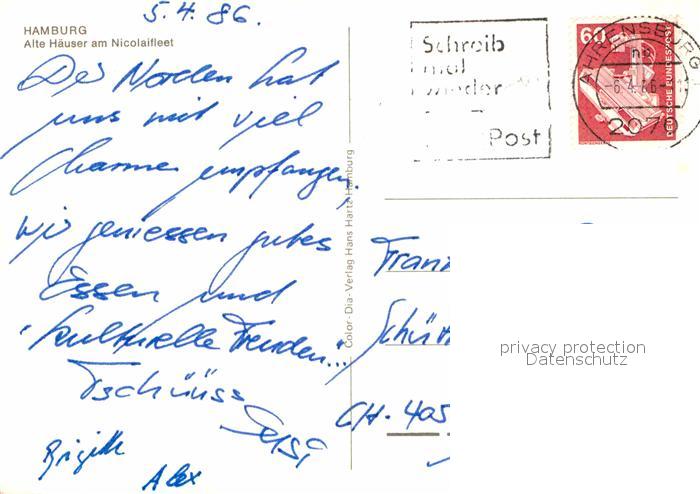 5.4.86.
HAMBURG
Alte Häuser am Nicolaifleet
Der Norden hat
uns mit viel
Charme empfangen,
wir geniessen gutes
Essen und
"kulturelle Freuden"...
Tschüüss
Brigitte
Alex
Color-Dia-Verlag Hans Hartz Hamburg
Schreib
mal
wieder
Post
60
DEUTSCHE BUNDESPOST
AHRENSBURG
-6.4.86
2070
Franz
Schürt
CH-405
privacy protection
Datenschutz